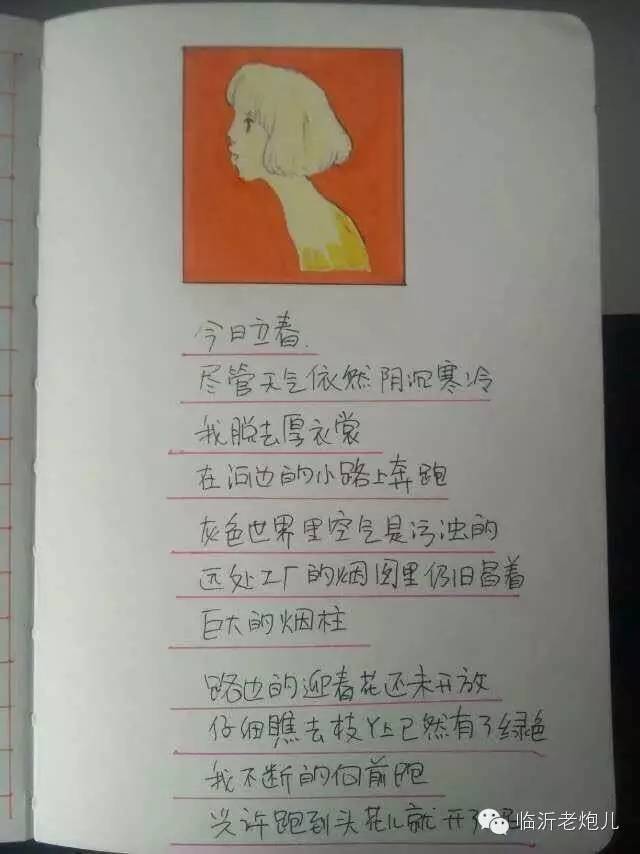 今日立春.
尽管天气依然阴沉寒冷
我脱去厚衣裳
在河边的小路上奔跑
灰色世界里空气是污浊的
远处工厂的烟囱里仍旧冒着
巨大的烟柱
路边的迎春花还未开放
仔细瞧去枝丫上已然有了绿色
我不断的向前跑
兴许跑到头花儿就开了
临沂老炮儿